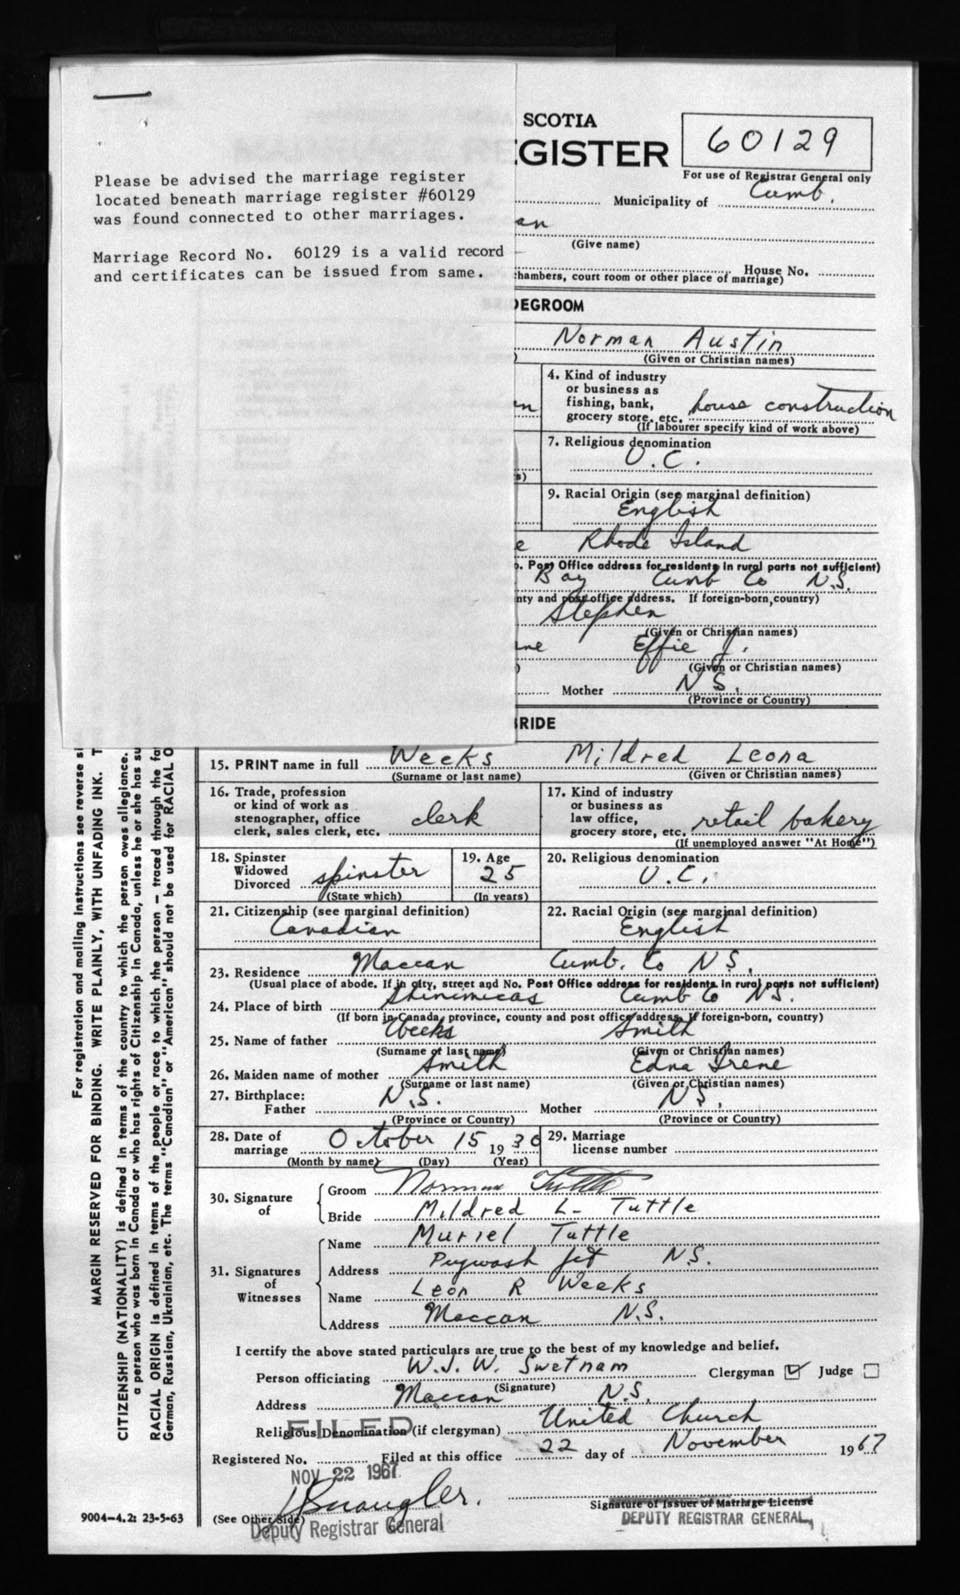 Please be advised the marriage register
located beneath marriage register #60129
was found connected to other marriages.
Marriage Record No. 60129 is a valid record
and certificates can be issued from same.
SCOTIA
GISTER
60129
For use of Registrar General only
Municipality of Cumb.
an
(Give name)
House No.
chambers, court room or other place of marriage)
DEGROOM
Norman Austin
(Given or Christian names)
4. Kind of industry
or business as
fishing, bank,
grocery store, etc. house construction
(If labourer specify kind of work above)
7. Religious denomination
U.C.
9. Racial Origin (see marginal definition)
English
e Rhode Island
o. Post Office address for residents in rural parts not sufficient)
Bay Cumb Co N.S.
nty and post office address. If foreign-born, country)
Stephen
(Given or Christian names)
ne Effie J.
(Given or Christian names)
Mother N.S.
(Province or Country)
BRIDE
15. PRINT name in full Weeks Mildred Leona
(Surname or last name) (Given or Christian names)
16. Trade, profession
or kind of work as
stenographer, office
clerk, sales clerk, etc. clerk
17. Kind of industry
or business as
law office,
grocery store, etc. retail bakery
(If unemployed answer "At Home")
18. Spinster
Widowed
Divorced spinster
(State which)
19. Age
25
(In years)
20. Religious denomination
U.C.
21. Citizenship (see marginal definition)
Canadian
22. Racial Origin (see marginal definition)
English
23. Residence Maccan Cumb. Co N.S.
(Usual place of abode. If in city, street and No. Post Office address for residents in rural parts not sufficient)
24. Place of birth Shinimicas Cumb Co N.S.
(If born in Canada, province, county and post office address. If foreign-born, country)
25. Name of father Weeks Smith
(Surname of last name) (Given or Christian names)
26. Maiden name of mother Smith Edna Irene
(Surname or last name) (Given or Christian names)
27. Birthplace:
Father N.S. Mother N.S.
(Province or Country) (Province or Country)
28. Date of
marriage October 15 19
(Month by name) (Day) (Year)
29. Marriage
license number
30. Signature
of
Groom Norman Tuttle
Bride Mildred L- Tuttle
31. Signatures
of
Witnesses
Name Muriel Tuttle
Address Pugwash Jct N.S.
Name Leon R Weeks
Address Maccan N.S.
I certify the above stated particulars are true to the best of my knowledge and belief.
Person officiating W.J.W. Swetnam Clergyman Judge
(Signature)
Address Maccan N.S.
Religious Denomination (if clergyman) United Church
FILED
Registered No. Filed at this office 22 day of November 1967
NOV 22 1967
Signature of Issuer of Marriage License
(See Other Side)
Deputy Registrar General
DEPUTY REGISTRAR GENERAL
9004-4.2: 23-5-63
For registration and mailing instructions see reverse si
MARGIN RESERVED FOR BINDING. WRITE PLAINLY, WITH UNFADING INK. T
CITIZENSHIP (NATIONALITY) is defined in terms of the country to which the person owes allegiance.
a person who was born in Canada or who has rights of Citizenship in Canada, unless he or she has su
RACIAL ORIGIN is defined in terms of the people or race to which the person — traced through the fa
German, Russian, Ukrainian, etc. The terms "Canadian" or "American" should not be used for RACIAL O